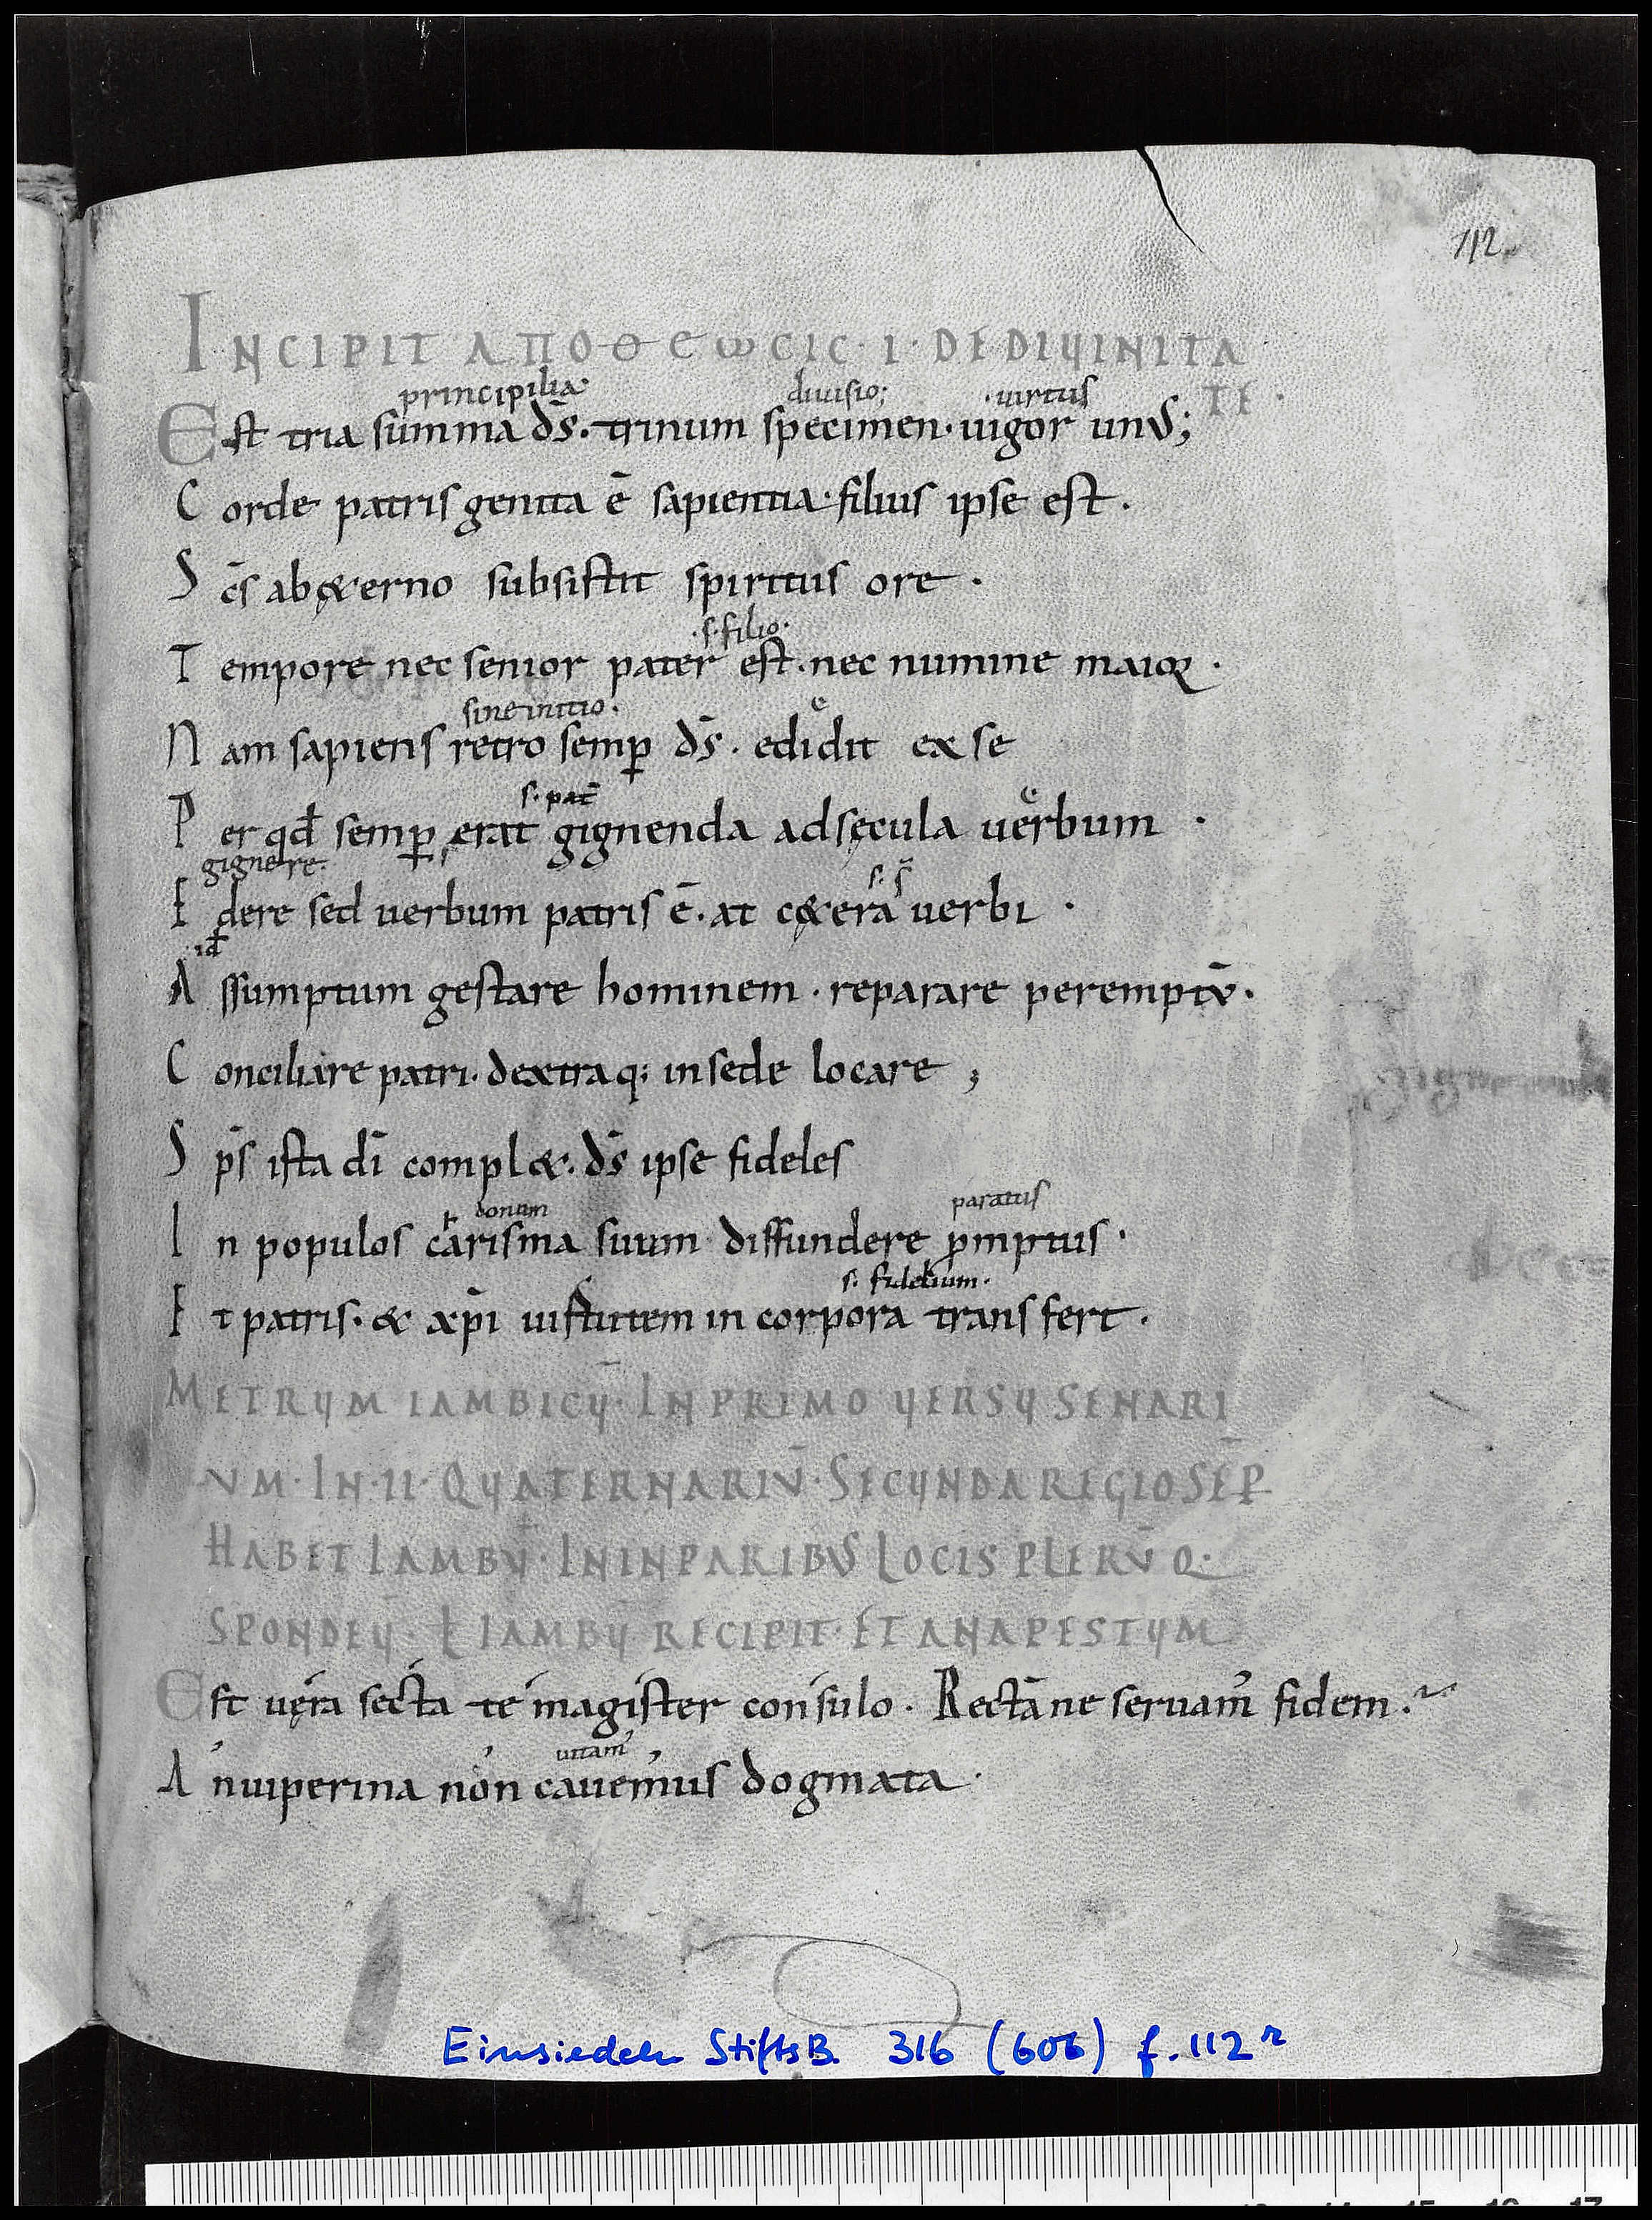 112
INCIPIT ΑΠΟΘΕωCIC · I · DE DIVINITA
TE ·
principilia· diuisio; ·uirtus
Est tria summa ds̄. trinum specimen· uigor unus;
Corde patris genita ē sapientia· filius ipse est.
Sc̄s ab ęterno subsistit spiritus ore.
·s·filio·
Tempore nec senior pater est. nec numine maior.
sine initio. e
Nam sapiens retro semꝑ ds̄. edidit ex se
s· pat̄ e
Per qđ semꝑ erat gignenda ad sęcula uerbum.
gignere· s· s̄
Edere sed uerbum patris ē. at cę&era uerbi.
·iđ
Assumptum gestare hominem. reparare peremptū.
Conciliare patri. dextraq; in sede locare;
Sp̄s ista dī compl&. ds̄ ipse fideles
h donum paratus
In populos carisma suum diffundere ꝓmptus.
s· fidelium·
Et patris. & xp̄i uirtutem in corpora transfert.
METRVM IAMBICV̄· IN PRIMO VERSV SENARI
VM· IN· II· QVATERNARIV̄· SECVNDA REGIO SEP̄
HABET IAMBV̄· IN INPARIBVS LOCIS PLERV̄Q·
SPONDEV̄· Ł IAMBV̄ RECIPIT· ET ANAPESTVM
Est uęra secta te magister consulo. Rectāne seruam' fidem.
uitam'
An uiperina non cauemus dogmata.
Einsiedeln StiftsB. 316 (606) f. 112 r
13 14 15 16 17